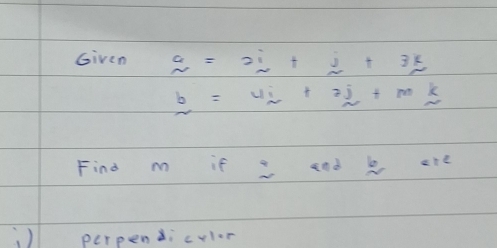 Given a = 2i + j + 3k
b = 4i + 2j + m k
Find m if a and b are
i) perpendicular